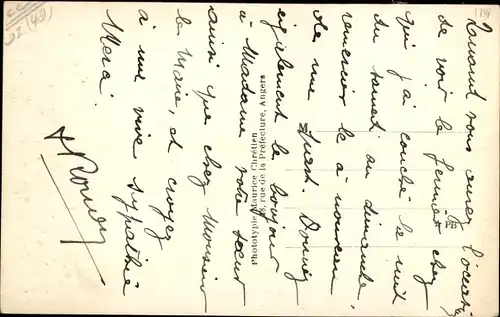 Quand vous aurez l'occasion
de voir la femme chez
qui j'ai couché la nuit
du samedi au dimanche,
remercier la à nouveau
de ma part. Donnez
également le bonjour
à Madame votre soeur
ainsi que chez Monsieur
le Maire, et croyez
à ma vive sympathie
Merci.
Phototypie Maurice Chrétien
8, rue de la Préfecture, Angers
PB